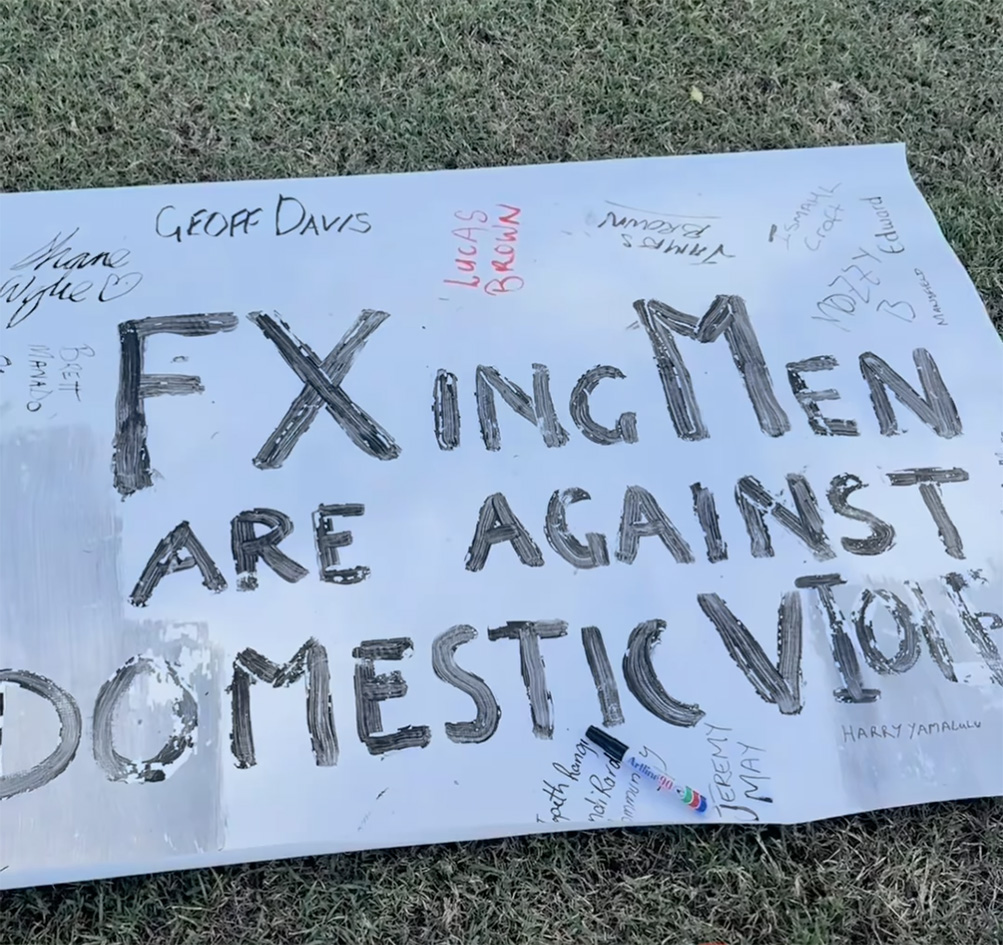 GEOFF DAVIS
Shane
Wylie
LUCAS
BROWN
JAMES
BROWN
Croft
Edward
NOZZY
B
BRETT
MANADO
FXING MEN
ARE AGAINST
DOMESTIC VIOLE
HARRY YAMALULU
JEREMY
MAY
Artline 90